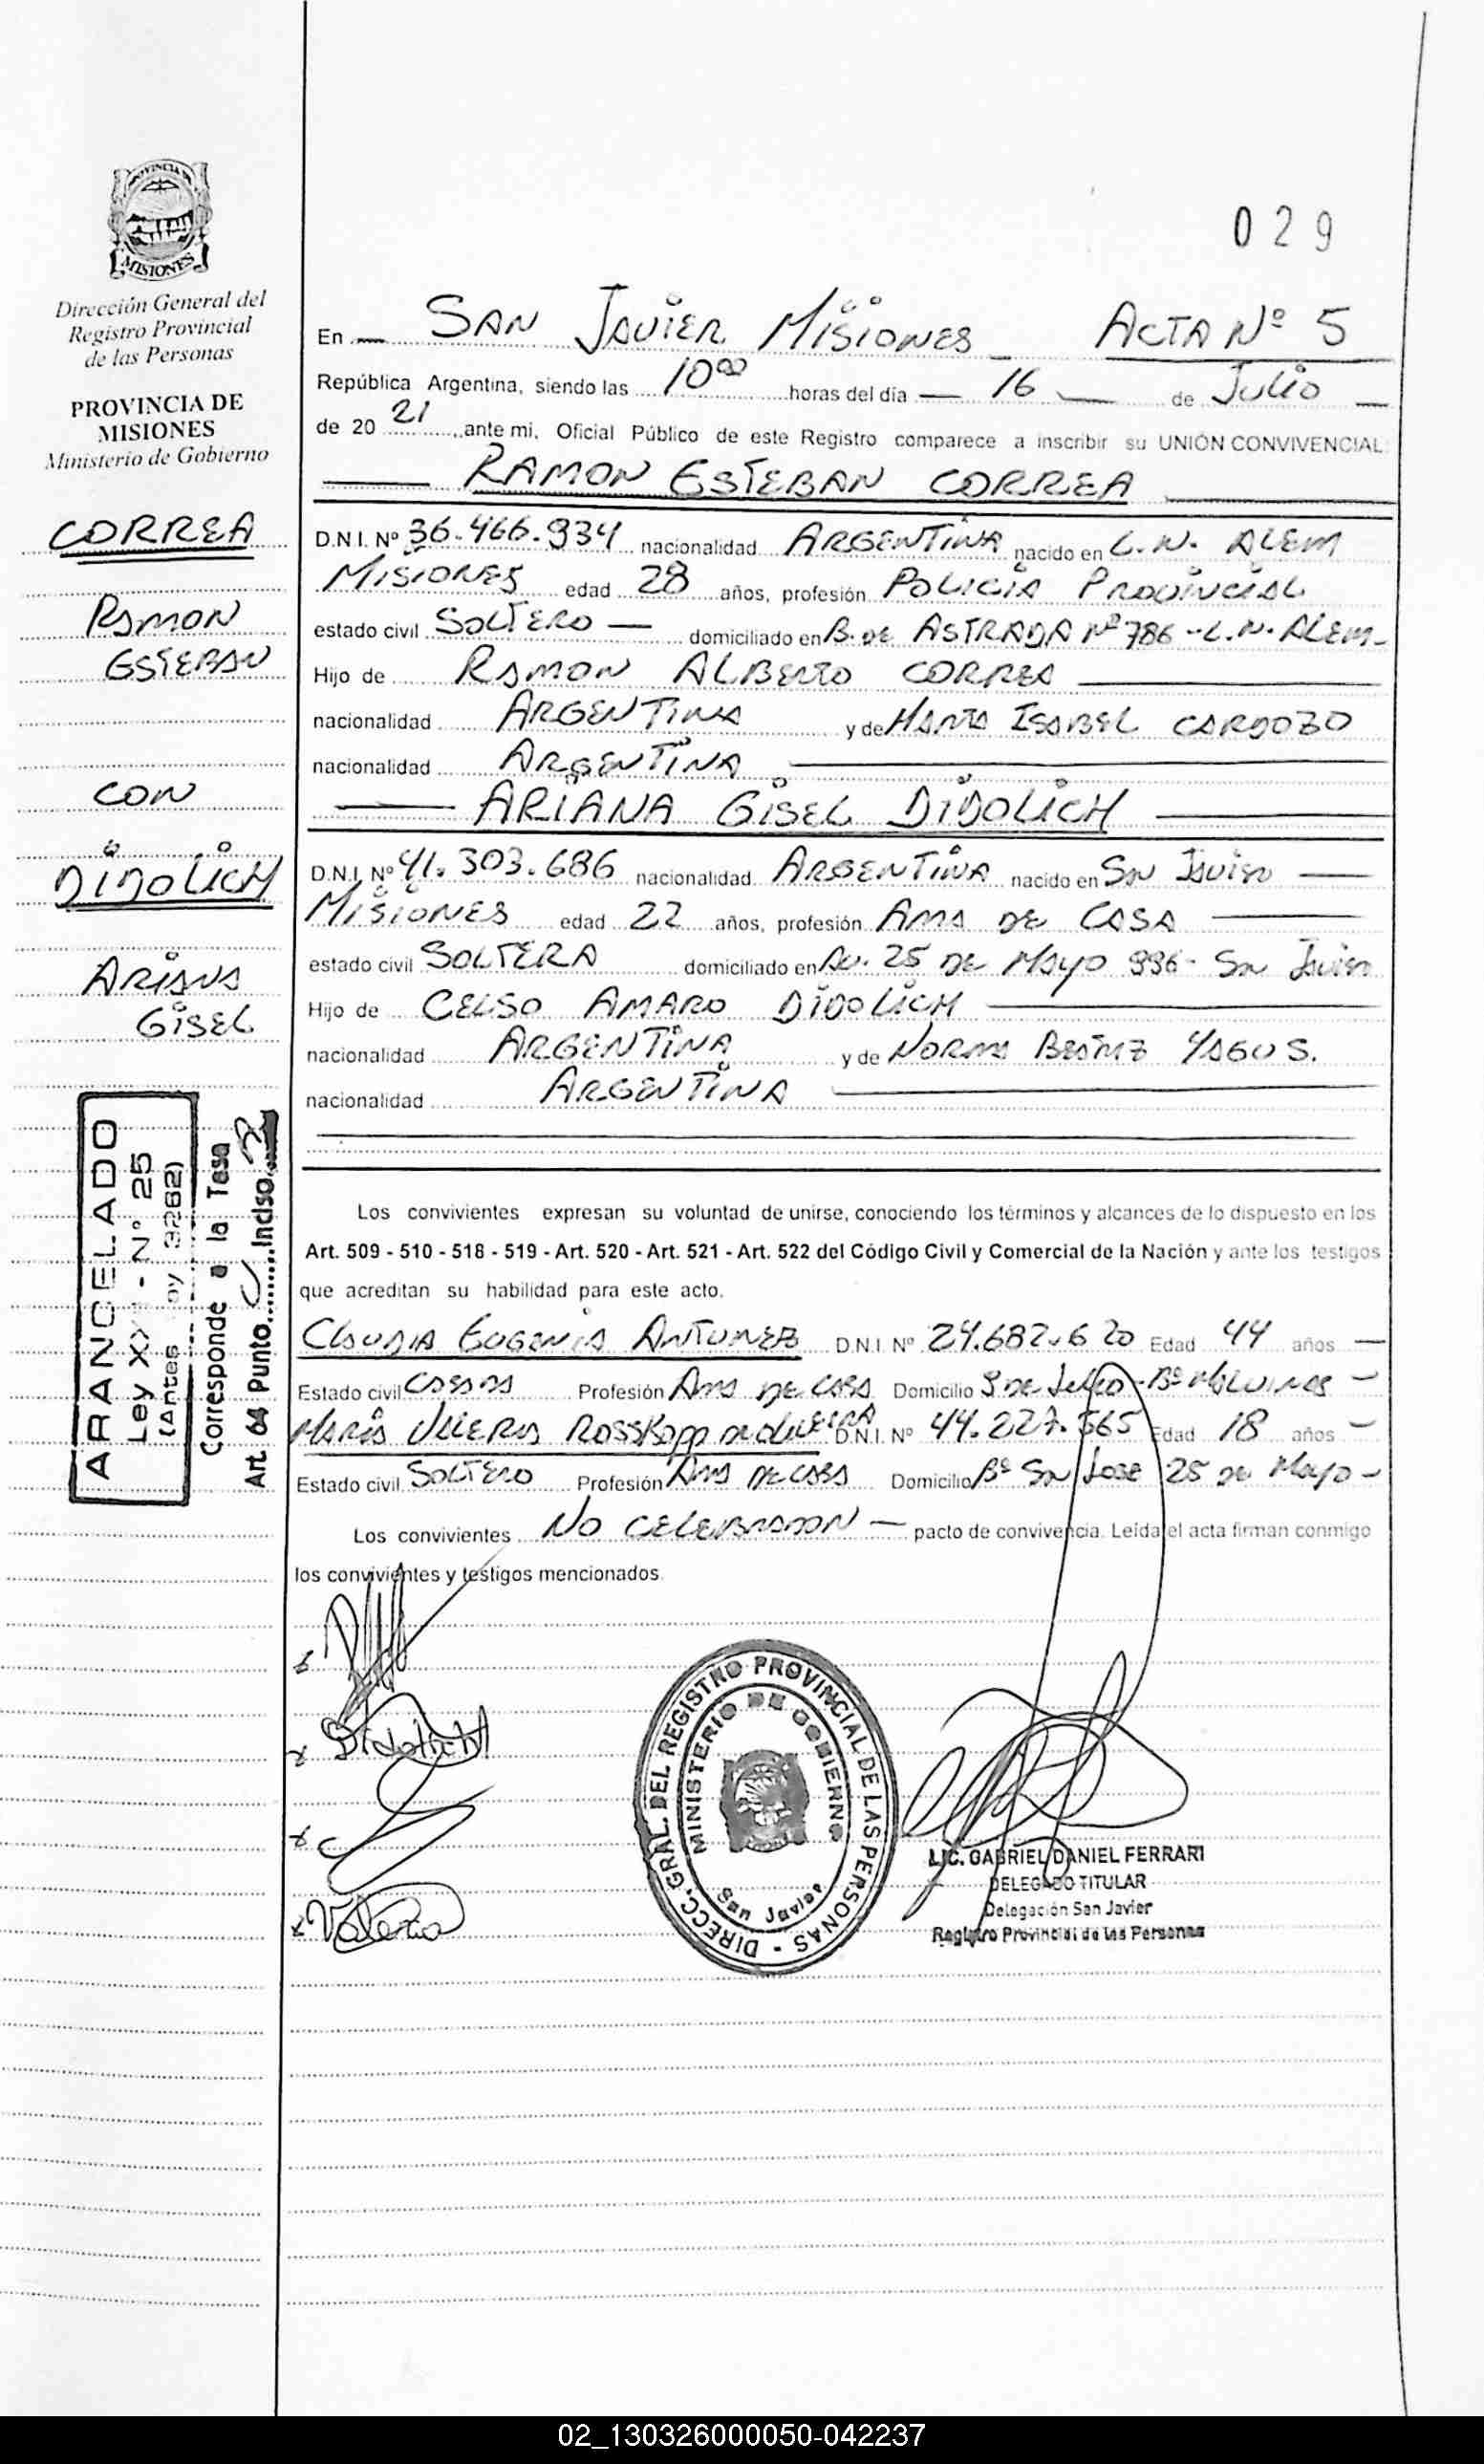 PROVINCIA DE
MISIONES
Dirección General del
Registro Provincial
de las Personas
PROVINCIA DE
MISIONES
Ministerio de Gobierno
CORREA
RAMON
ESTEBAN
CON
DIDOLICH
ARIANA
GISEL
ARANCELADO
Ley XXII - Nº 25
(Antes Ley 3262)
Corresponde a la Tasa
Art. 64 Punto Inciso
029
En SAN JAVIER MISIONES ACTA Nº 5
República Argentina, siendo las 10 00 horas del día 16 de Julio
de 20 21, ante mi, Oficial Público de este Registro comparece a inscribir su UNIÓN CONVIVENCIAL:
RAMON ESTEBAN CORREA
D.N.I. Nº 36.466.934 nacionalidad ARGENTINA nacido en L.N. ALEM
MISIONES edad 28 años, profesión POLICIA PROVINCIAL
estado civil SOLTERO domiciliado en B. DE ASTRADA Nº 786 - L.N. ALEM -
Hijo de RAMON ALBERTO CORREA
nacionalidad ARGENTINA y de MARTA ISABEL CARDOZO
nacionalidad ARGENTINA
ARIANA GISEL DIDOLICH
D.N.I. Nº 41.303.686 nacionalidad ARGENTINA nacido en SAN JAVIER
MISIONES edad 22 años, profesión AMA DE CASA
estado civil SOLTERA domiciliado en AV. 25 DE MAYO 996 - SAN JAVIER
Hijo de CELSO AMARO DIDOLICH
nacionalidad ARGENTINA y de NORMA BEATRIZ YAGUS.
nacionalidad ARGENTINA
Los convivientes expresan su voluntad de unirse, conociendo los términos y alcances de lo dispuesto en los
Art. 509 - 510 - 518 - 519 - Art. 520 - Art. 521 - Art. 522 del Código Civil y Comercial de la Nación y ante los testigos
que acreditan su habilidad para este acto.
CLAUDIA EUGENIA ANTUNEZ D.N.I. Nº 24.682.620 Edad 44 años
Estado civil CASADA Profesión AMA DE CASA Domicilio 9 DE JULIO - Bº MALVINAS -
MARIA VALERIA ROSSKOPP DE OLIVEIRA D.N.I. Nº 44.227.565 Edad 18 años
Estado civil SOLTERO Profesión AMA DE CASA Domicilio Bº SAN JOSE 25 DE MAYO -
Los convivientes NO CELEBRARON pacto de convivencia. Leída el acta firman conmigo
los convivientes y testigos mencionados.
Didolich
Valeria
DIRECC. GRAL. DEL REGISTRO PROVINCIAL DE LAS PERSONAS -
MINISTERIO DE GOBIERNO
San Javier
LIC. GABRIEL DANIEL FERRARI
DELEGADO TITULAR
Delegación San Javier
Registro Provincial de las Personas
02_130326000050-042237